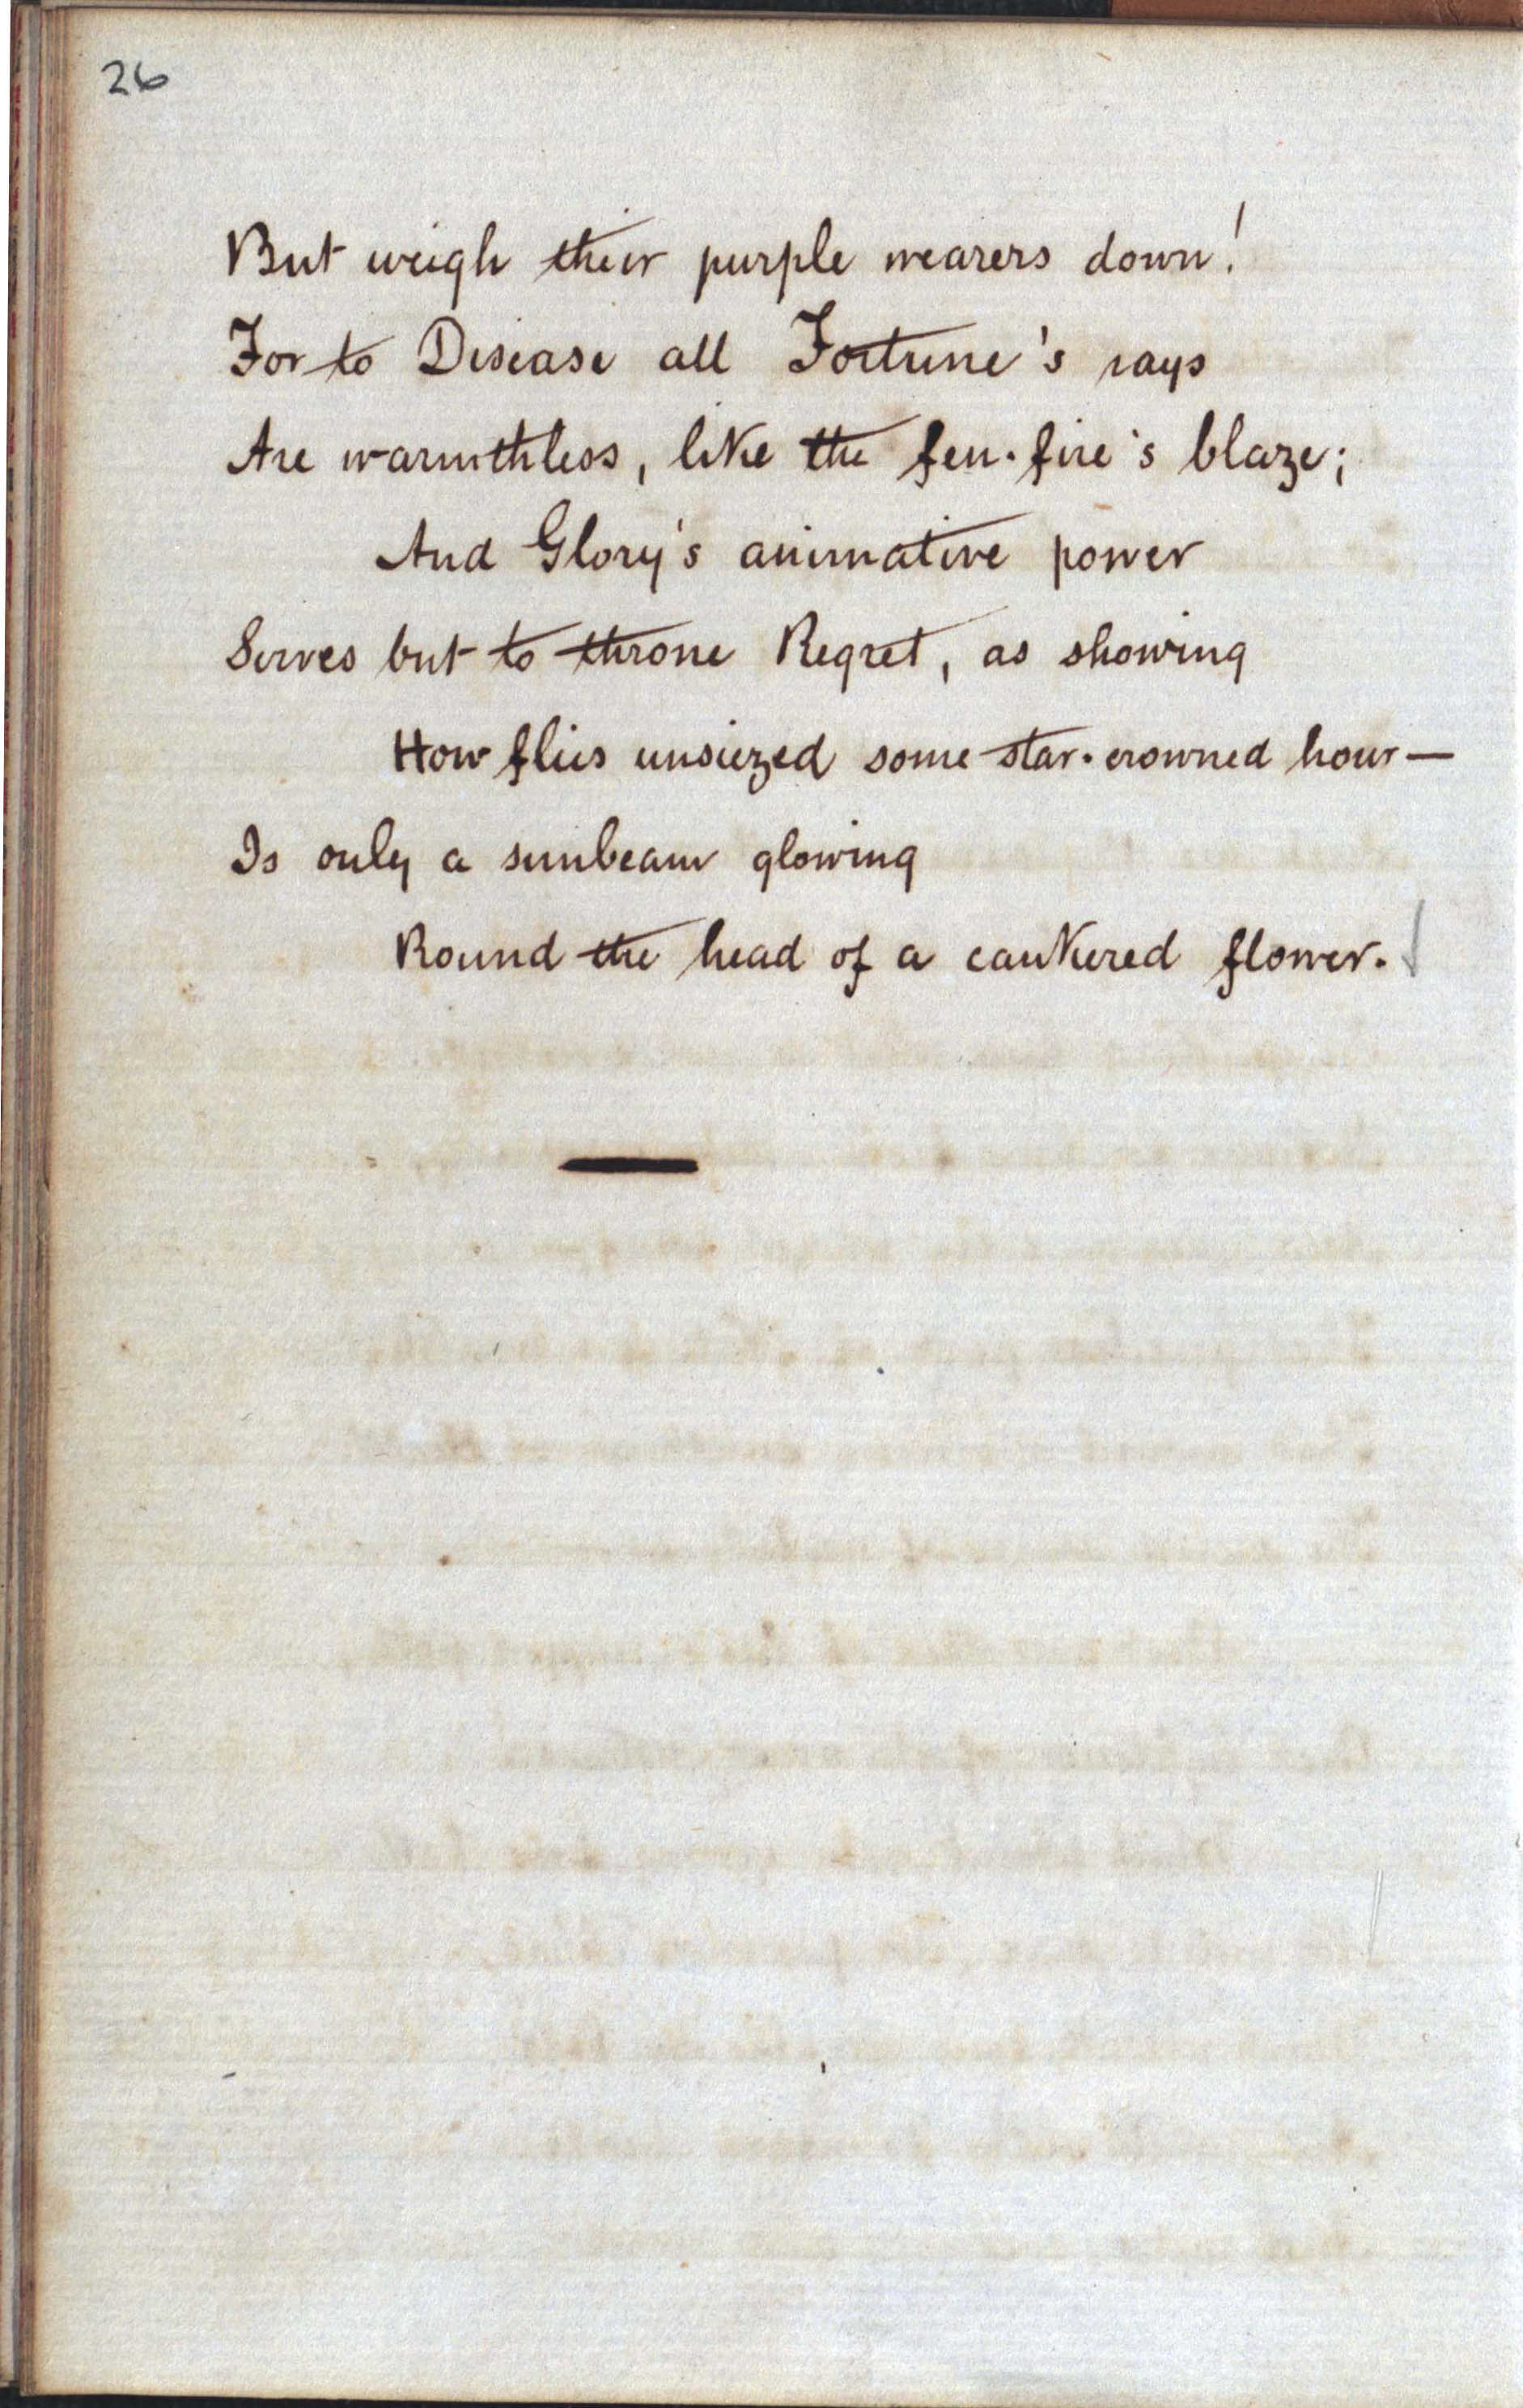 26
But weigh their purple wearers down!
For to Disease all Fortune's rays
Are warmthless, like the fen-fire's blaze;
And Glory's animative power
Serves but to throne Regret, as showing
How flies unsiezed some star-crowned hour—
Is only a sunbeam glowing
Round the head of a cankered flower.